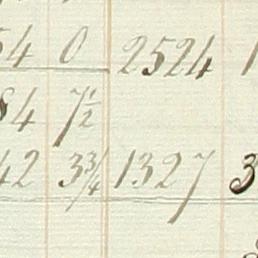 54 0 2524 1
84 7½
42 3¾ 1327 3